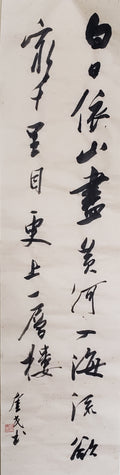 白日依山盡黄河入海流欲
窮千里目更上一層樓